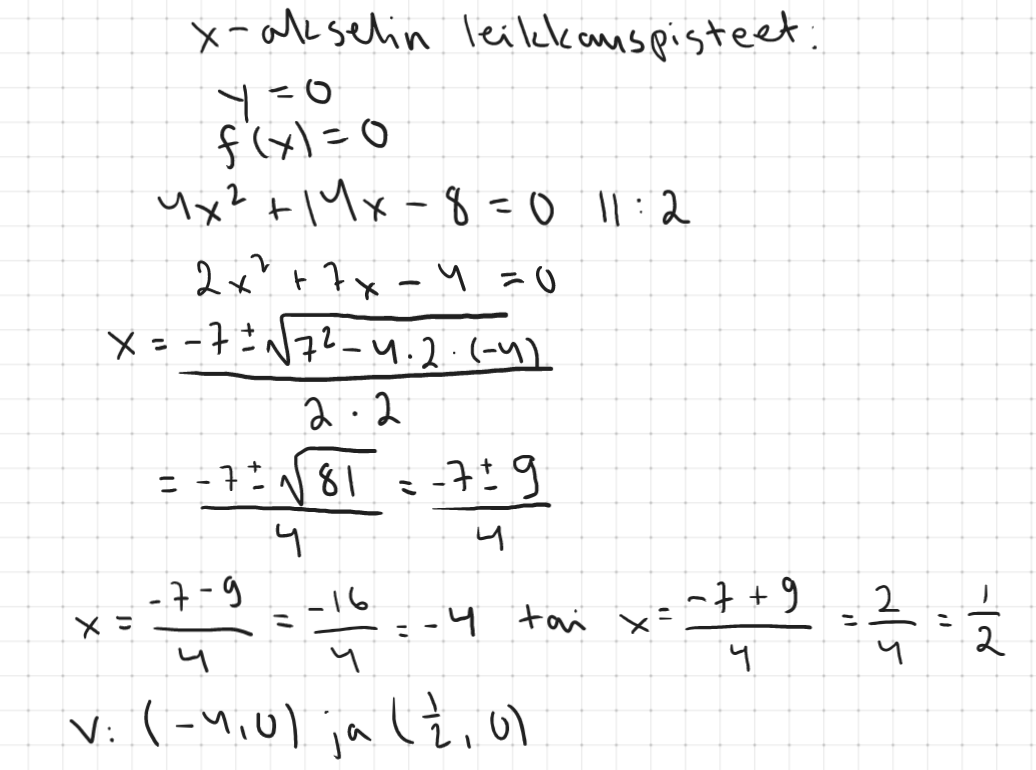 x-akselin leikkauspisteet:
y = 0
f(x) = 0
4x² + 14x - 8 = 0 || : 2
2x² + 7x - 4 = 0
x = (-7 ± √(7² - 4 · 2 · (-4))) / (2 · 2)
= (-7 ± √81) / 4 = (-7 ± 9) / 4
x = (-7 - 9) / 4 = -16 / 4 = -4 tai x = (-7 + 9) / 4 = 2/4 = 1/2
V: (-4, 0) ja (1/2, 0)